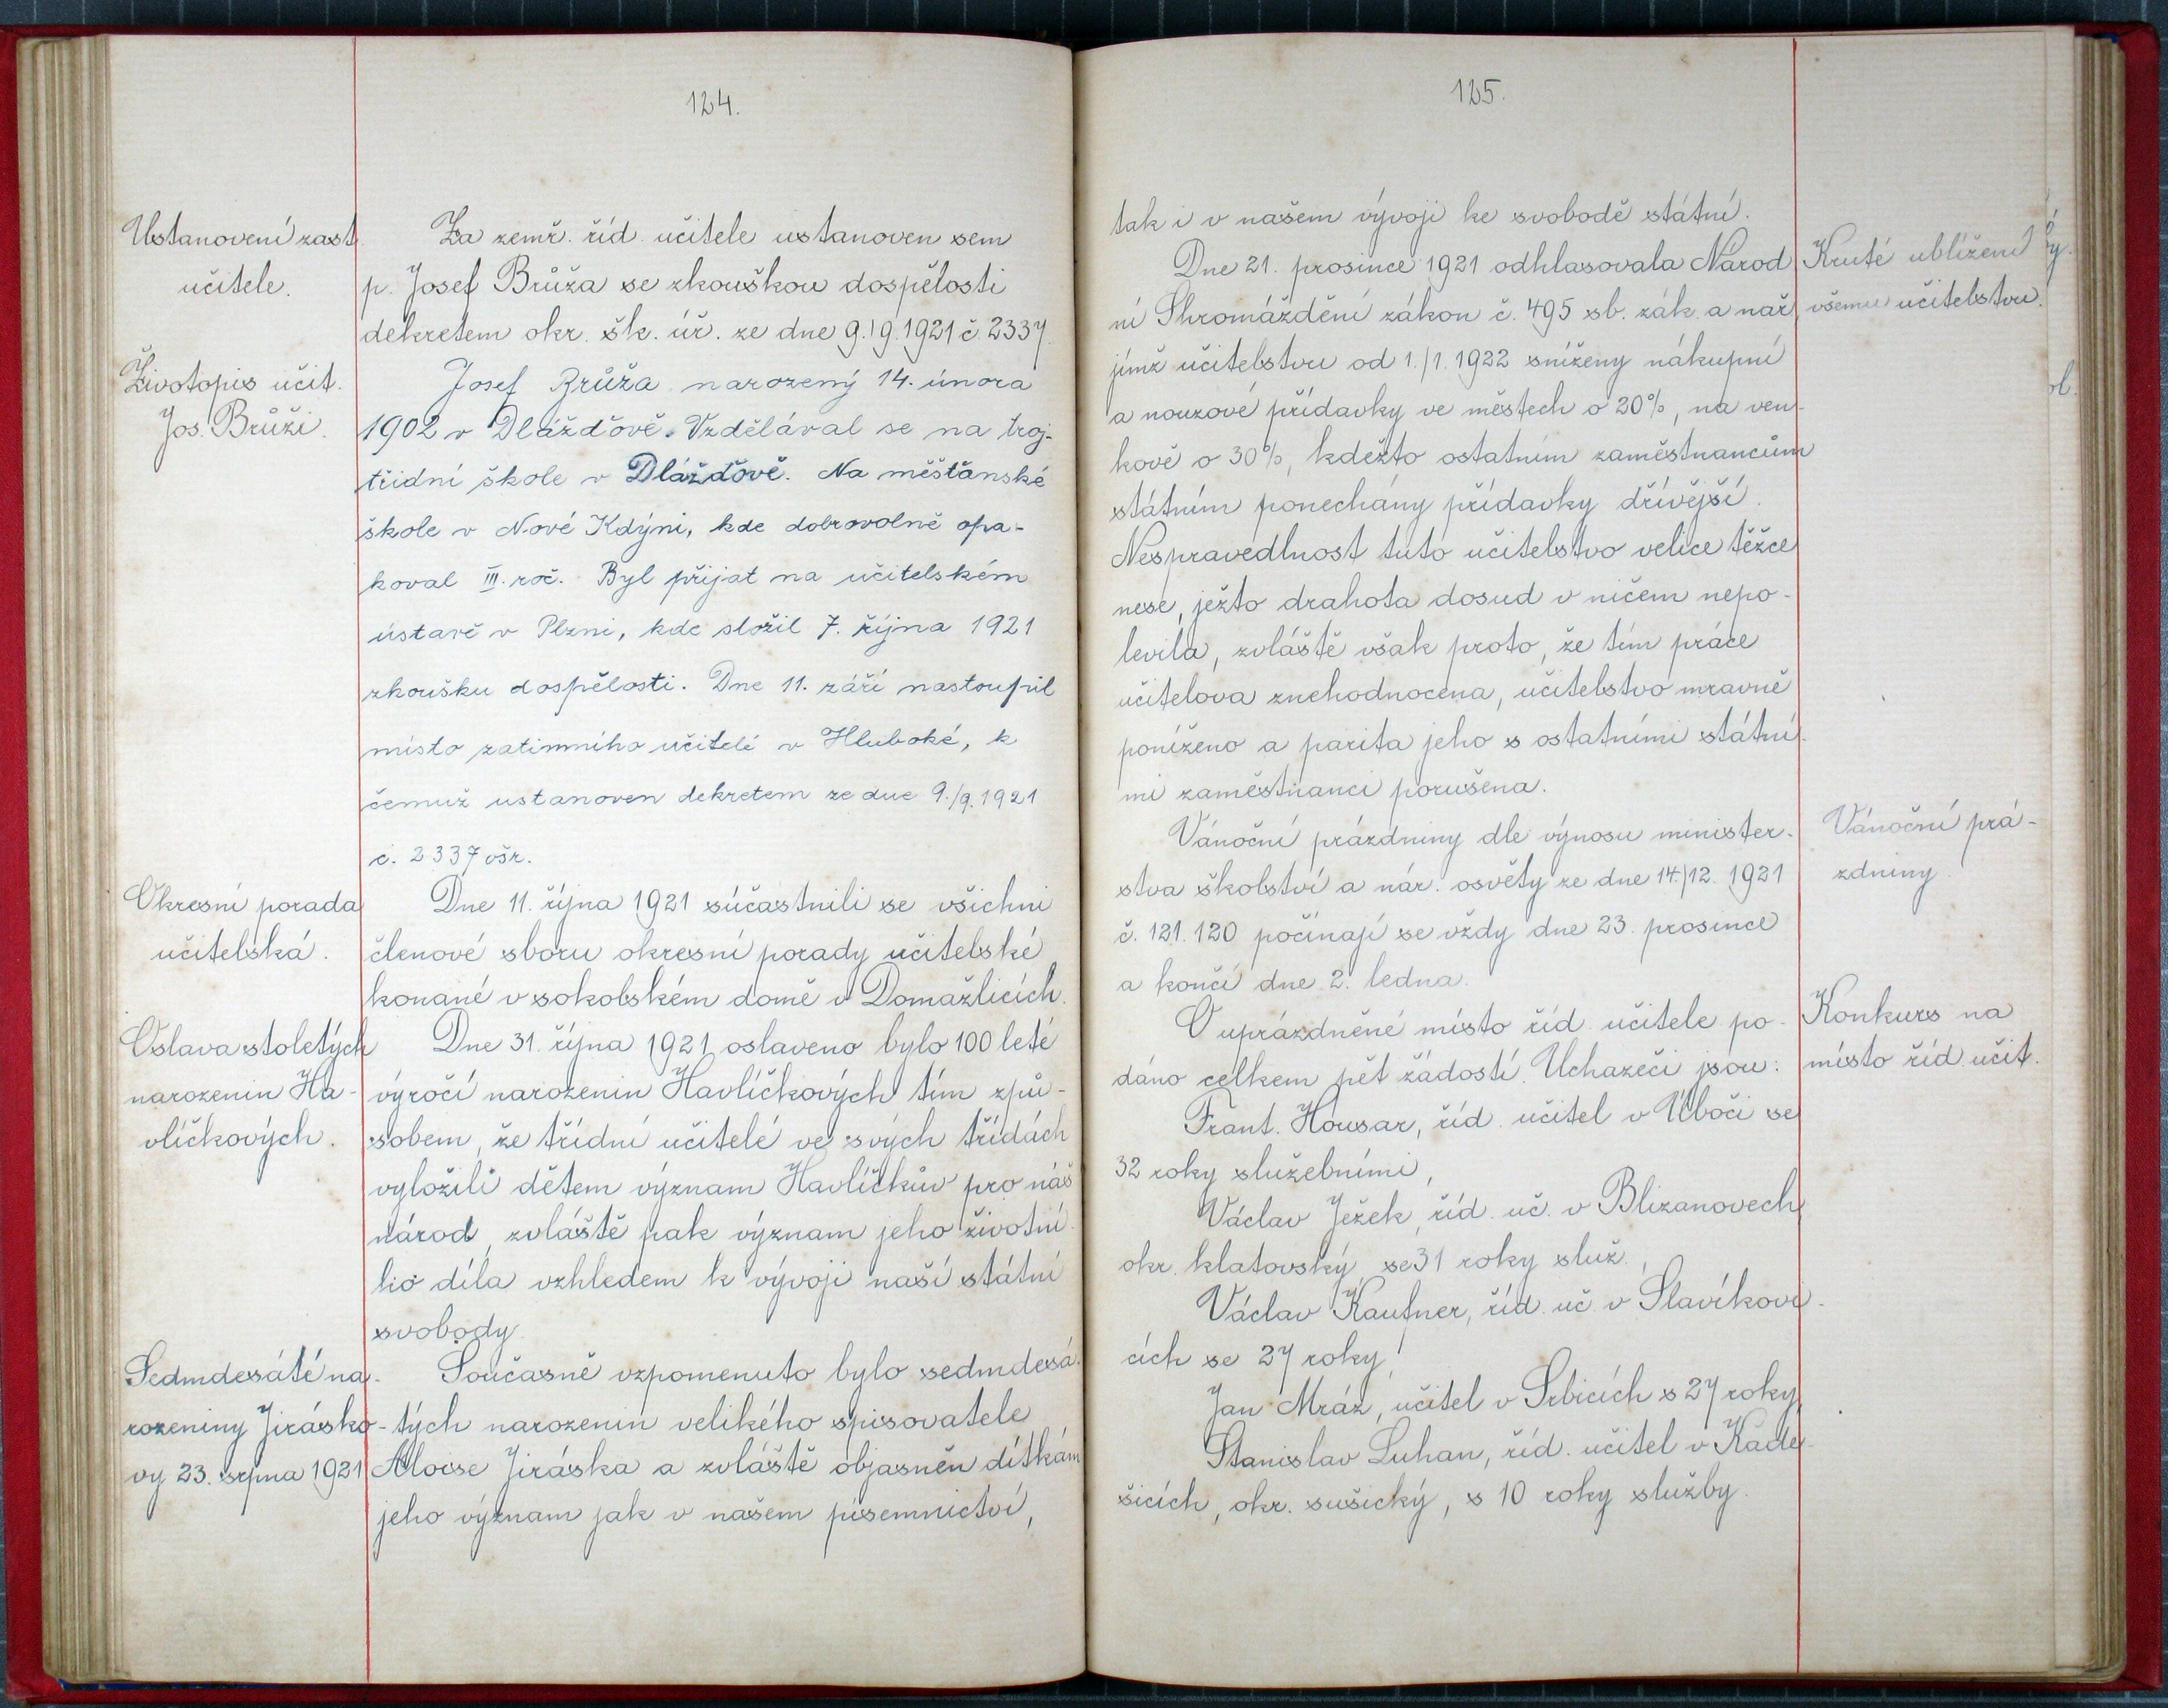 124.
Ustanovení zast.
učitele.
Za zemř. říd. učitele ustanoven sem
p. Josef Brůža se zkouškou dospělosti
dekretem okr. šk. úř. ze dne 9./9. 1921 č. 2337.
Životopis učit.
Jos. Brůži.
Josef Brůža narozený 14. února
1902 v Dlážďově. Vzdělával se na troj-
třídní škole v Dlážďově. Na měšťanské
škole v Nové Kdýni, kde dobrovolně opa-
koval III. roč. Byl přijat na učitelském
ústavě v Plzni, kde složil 7. října 1921
zkoušku dospělosti. Dne 11. září nastoupil
místo zatimního učitele v Hluboké, k
čemuž ustanoven dekretem ze dne 9./9. 1921
č. 2337 ošr.
Okresní porada
učitelská.
Dne 11. října 1921 súčastnili se všichni
členové sboru okresní porady učitelské
konané v sokolském domě v Domažlicích.
Oslava stoletých
narozenin Ha-
vlíčkových.
Dne 31. října 1921 oslaveno bylo 100 leté
výročí narozenin Havlíčkových tím způ-
sobem, že třídní učitelé ve svých třídách
vyložili dětem význam Havlíčkův pro náš
národ, zvláště pak význam jeho životní-
ho díla vzhledem k vývoji naší státní
svobody.
Sedmdesáté na-
rozeniny Jirásko-
vy 23. srpna 1921
Současně vzpomenuto bylo sedmdesá-
tých narozenin velikého spisovatele
Aloise Jiráska a zvláště objasněn dítkám
jeho význam jak v našem písemnictví,
125.
tak i v našem vývoji ke svobodě státní.
Dne 21. prosince 1921 odhlasovala Národ-
ní Shromáždění zákon č. 495 sb. zák. a nař.
jímž učitelstvu od 1./1. 1922 sníženy nákupní
a nouzové přídavky ve městech o 20%, na ven-
kově o 30%, kdežto ostatním zaměstnancům
státním ponechány přídavky dřívější.
Nespravedlnost tuto učitelstvo velice těžce
nese, ježto drahota dosud v ničem nepo-
levila, zvláště však proto, že tím práce
učitelova znehodnocena, učitelstvo mravně
poníženo a parita jeho s ostatními státní-
mi zaměstnanci porušena.
Kruté ublížení
všemu učitelstvu.
Vánoční prázdniny dle výnosu minister-
stva školství a nár. osvěty ze dne 14./12. 1921
č. 121.120 počínají se vždy dne 23. prosince
a končí dne 2. ledna.
Vánoční prá-
zdniny.
O uprázdněné místo říd. učitele po-
dáno celkem pět žádostí. Uchazeči jsou:
Konkurs na
místo říd. učit.
Frant. Housar, říd. učitel v Úboči se
32 roky služebními,
Václav Ježek, říd. uč. v Blizanovech
okr. klatovský se 31 roky služ.,
Václav Kaufner, říd. uč v Slavíkovi-
cích se 27 roky,
Jan Mráz, učitel v Srbicích s 27 roky,
Stanislav Luhan, říd. učitel v Kade-
šicích, okr. sušický, s 10 roky služby.